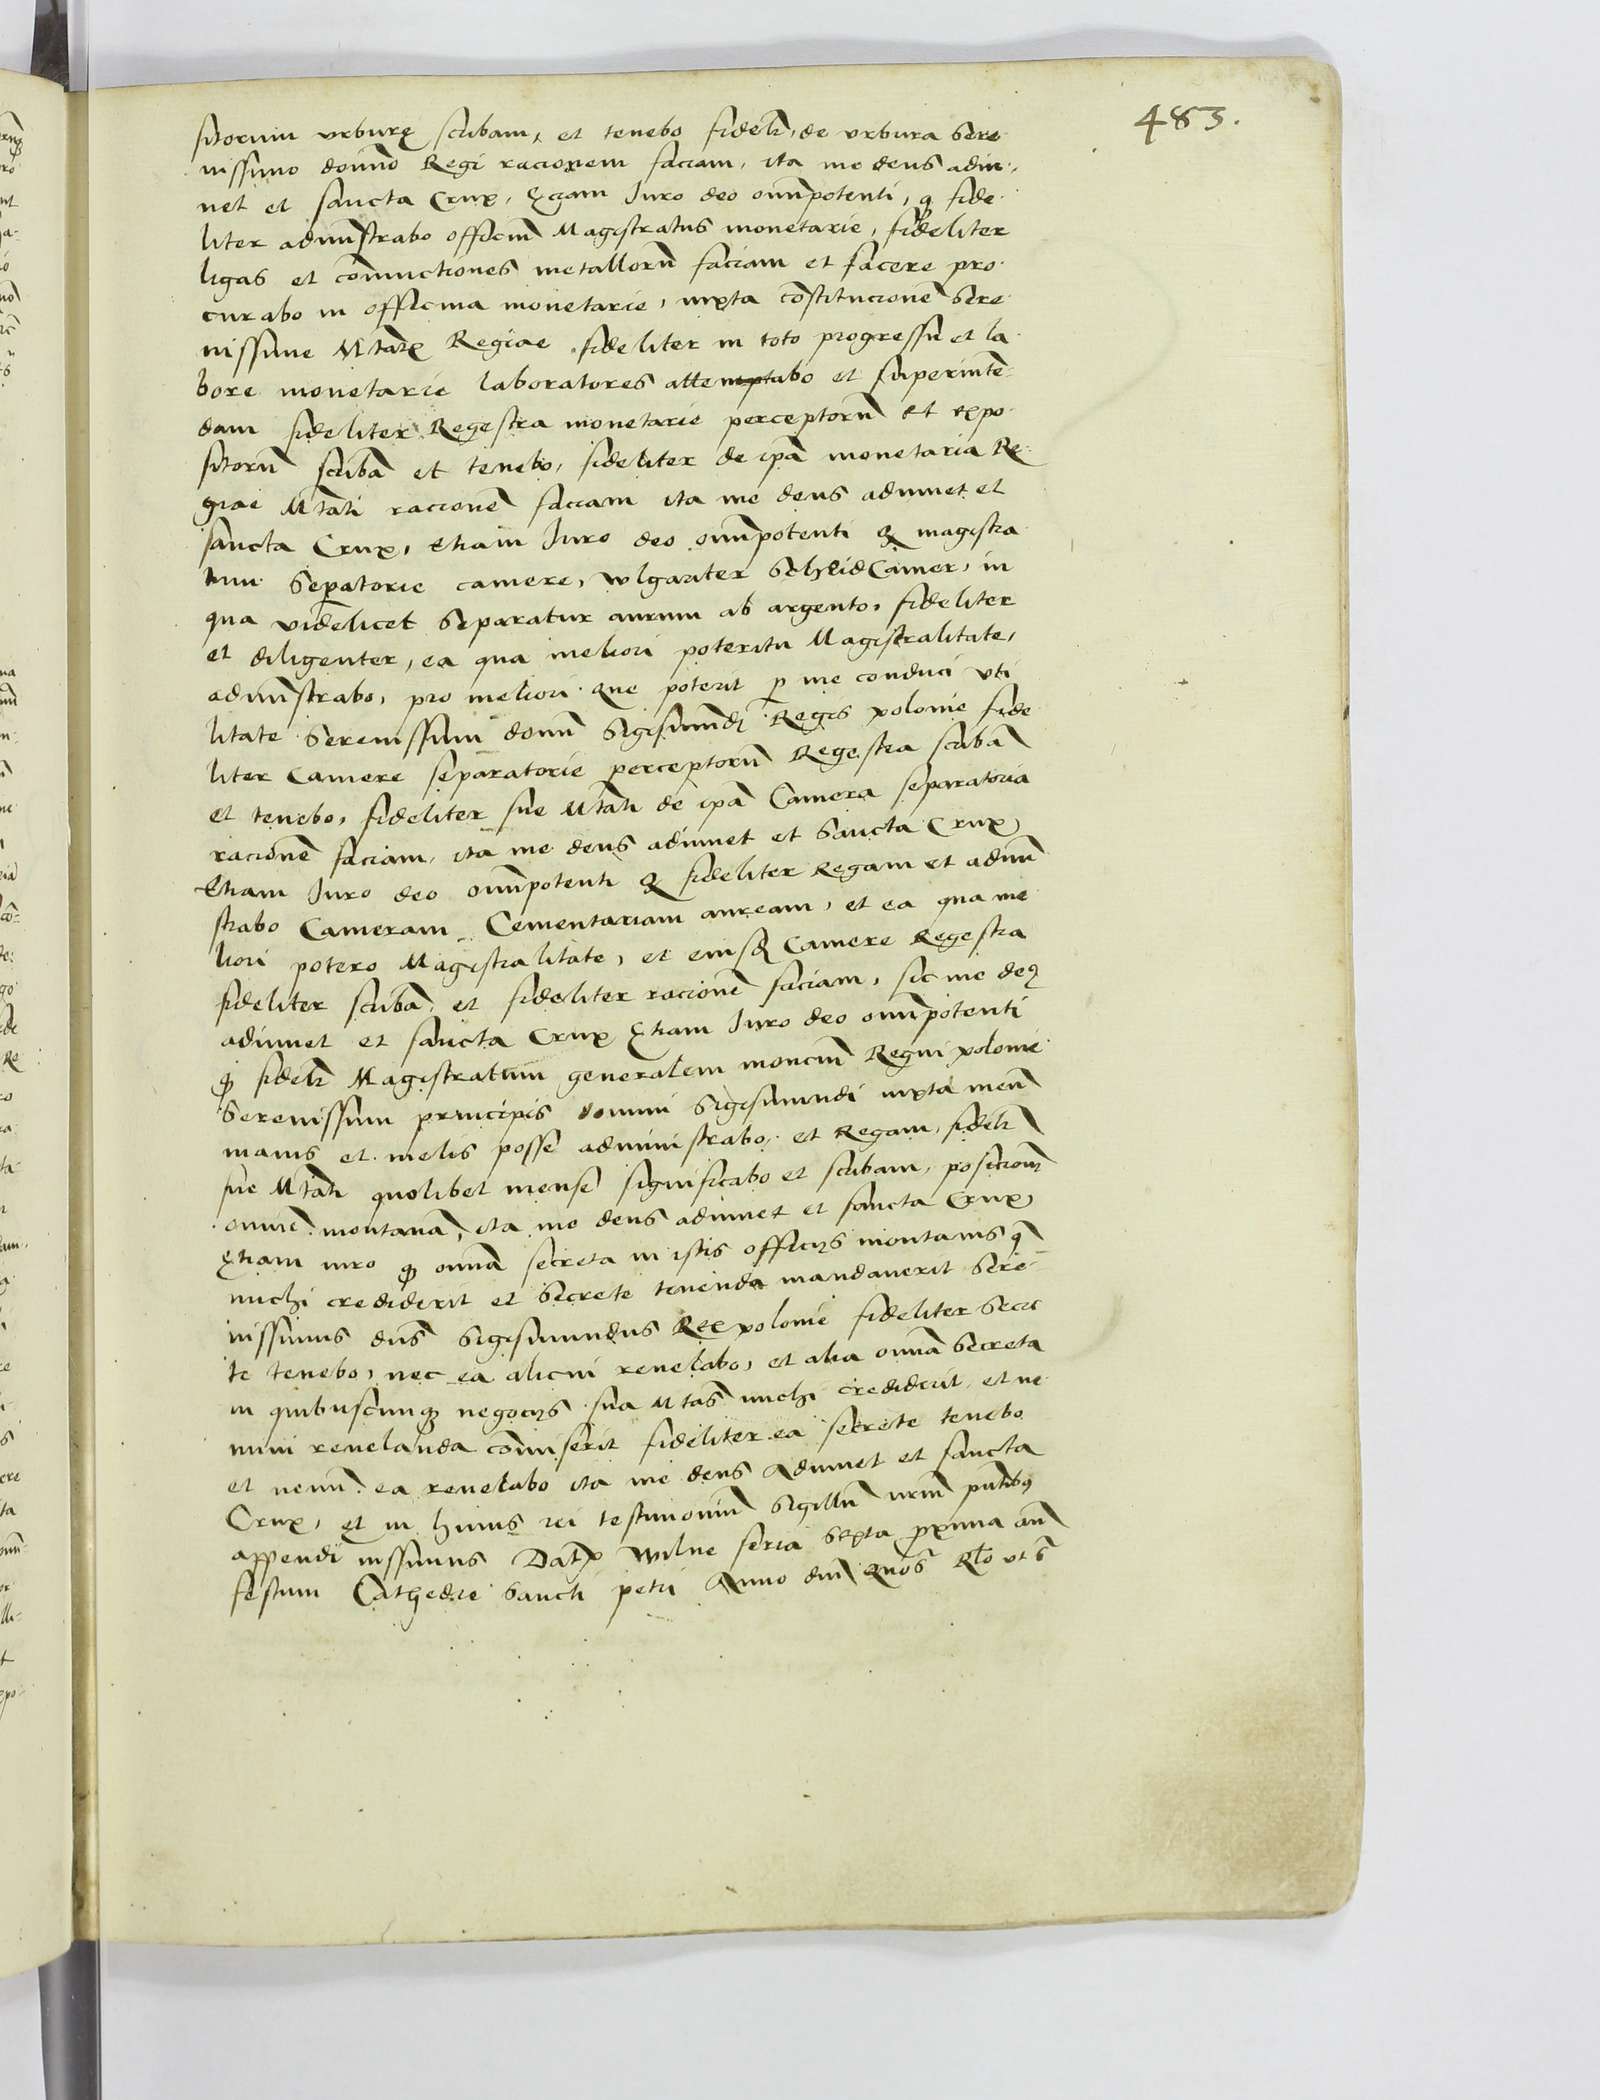 483.
sitorum vrburę scribam, et tenebo fidelr̃, de vrbura Sere
nissimo domino Regi racionem faciam, ita me deus adiu,
uet et sancta Crux, Eciam Iuro deo omnipotenti, q fide
liter administrabo officiũ Magistratus monetarie, fideliter
ligas et cõmixtiones metallorũ faciam et facere pro
curabo in officina monetarie, iuxta cõstitucionẽ Sere
nissime Mtatę Regiae fideliter in toto progressu et la
bore monetarie laboratores attemptabo et superintẽ
dam fideliter Regestra monetarie perceptorũ et expo
sitorũ scribã et tenebo, fideliter de ipã monetaria Re
giae Mtati racionẽ faciam ita me deus adiuuet et
sancta Crux, etiam Iuro deo omnipotenti q magistra
tum Sepatorie camere, wlgariter ScheidCamer, in
qua videlicet Separatur aurum ab argento, fideliter
et diligenter, ea qua meliori poteritis Magistralitate,
administrabo, pro meliori que poterit p me conduci vti
litate Serenissimi domini Sigismundi Regis polonie fide
liter Camere separatorie perceptorũ Regestra scribã
et tenebo, fideliter sue Mtati de ipã Camera separatoria
racionẽ faciam, ita me deus adiuuet et Sancta Crux
Etiam Iuro deo omnipotenti q fideliter Regam et admini
strabo Cameram Cementariam auream, et ea qua me
liori potero Magistralitate, et eiusdẽ Camere Regestra
fideliter scribã, et fideliter racionẽ faciam, sic me deꝰ
adiuuet et sancta Crux Etiam Iuro deo omnipotenti
q fidelr̃ Magistratum generalem monciũ Regni polonie
Serenissimi principis domini Sigismundi iuxta meũ
maius et melis posse administrabo, et Regam, fidelr̃
sue Mtati quolibet mense significabo et scribam, posicionẽ
omnẽ montanã, ita me deus adiuuet et sancta Crux
Etiam iuro q omnia secreta in istis officijs montanis q̃
michi crediderit et Secrete tenenda mandauerit Sere
nissimus dñs Sigismundus Rex polonie fideliter Secre
te tenebo, nec ea alicui reuelabo, et alia omnia Secreta
in quibuscunqꝫ negocijs sua Mtas michi crediderit et ne
mini reuelanda cõmiserit fideliter ea secrete tenebo
et nemini ea reuelabo ita me deus Adiuuet et sancta
Crux, Et in huius rei testimoniũ Sigillũ nrm̃ pñtibꝰ
appendi iussimus Datę Wilne feria Sexta proxima añ
festum Cathedre Sancti petri Anno dni Quos Rlo vt S